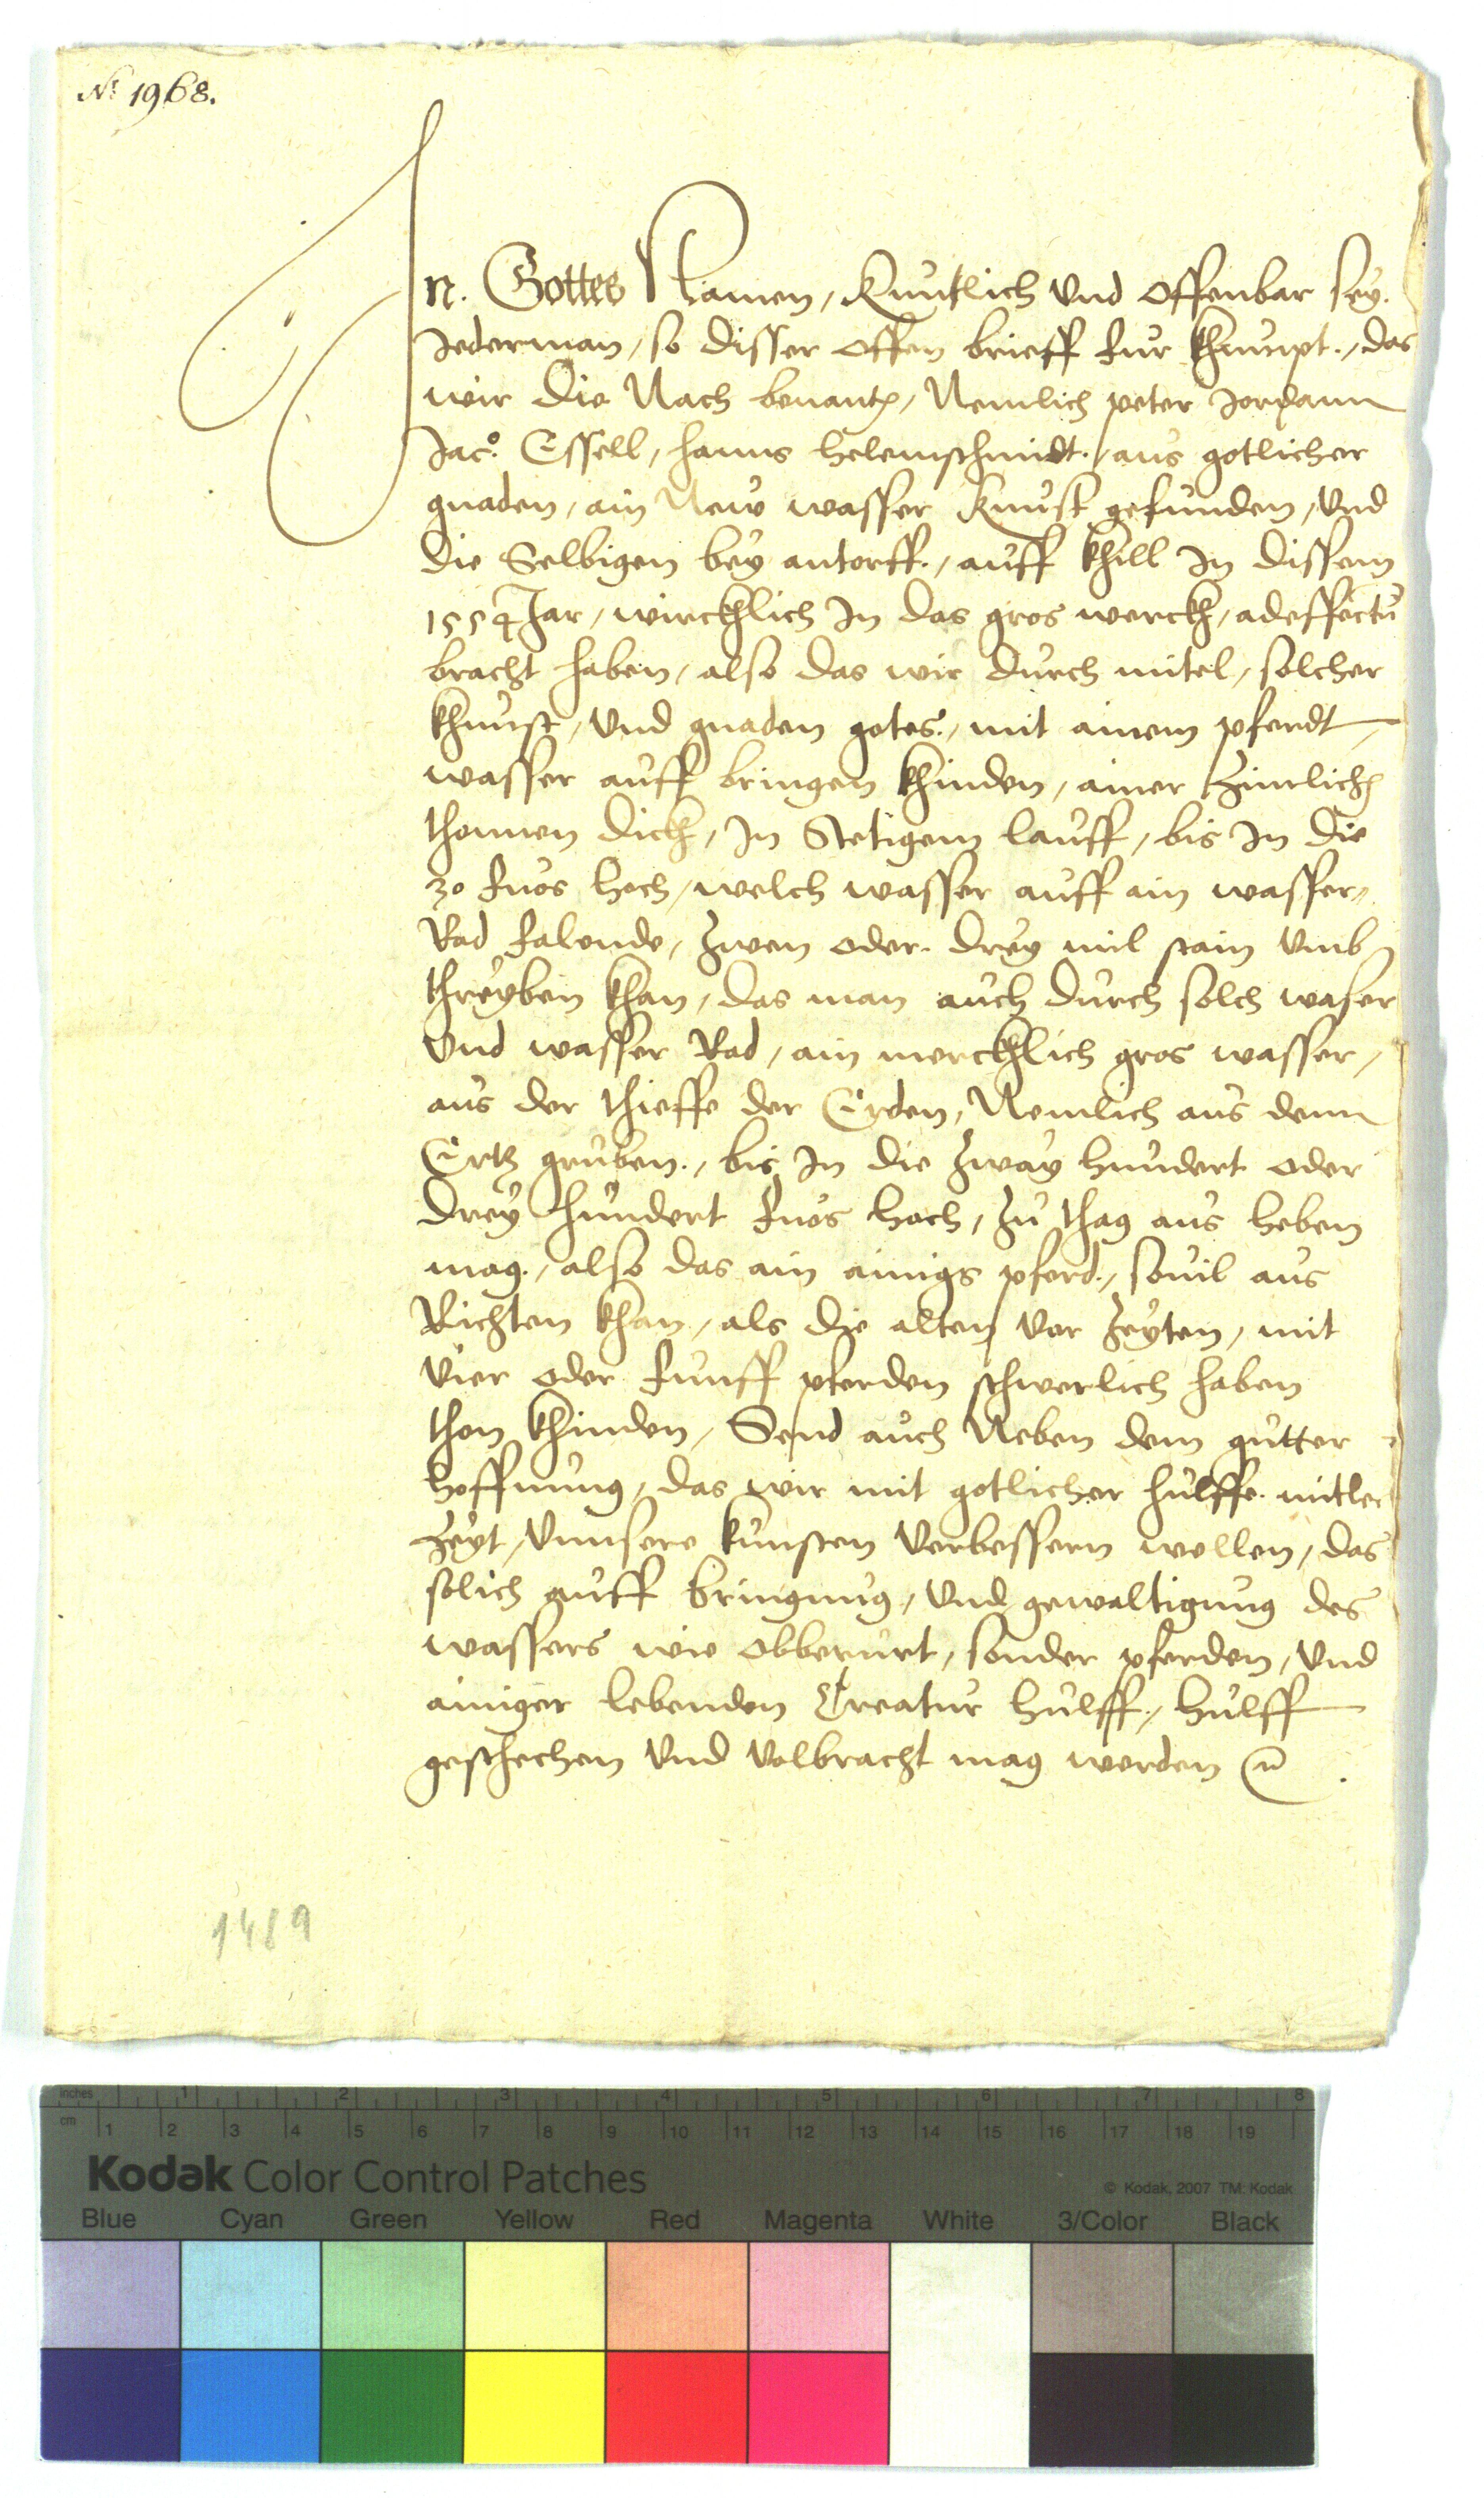 No 1968.
In. Gottes Namen, Kuntlich vnd offenbar sey.
Jederman, so disser offen brieff fur khumpt., das
wir die Nach benanten, Nemlich peter Jordann
Jaco. Essell, hanns helemschmidt., aus gotlicher
gnaden, ain New wasser Kunst gefunden, vnd
die Selbigen bey antorff., auff khill In dissem
1554 Jar, wircklich In das gros werckh, adeffectu
bracht haben, also das wir durch mitel, solcher
khunst, vnd gnaden gotes., mit ainem pferdt
wasser auff bringen khinden, ainer Zimlichen
thonnen dickh, In Stetigem lauff, bis In die
30 fuos hoch, welch wasser auff ain wasser
Rad falende, Zwen oder. drey mil stain vmb
threyben khan, das man auch durch solch waser
vnd wasser Rad, ain merckhlich gros wasser,
aus der thieffe der Erden, Nemlich aus denn
Ertz gruben., bis In die Zway hundert oder
drey hundert fuos hoch, Zu thag aus heben
mag., also das ain ainigs pferd., souil aus
Richten khan, als die alten vor Zeyten, mit
vier oder funff pferden schwerlich haben
thon khinden, Send auch Neben dem gutter
hoffnung, das wir mit gotlicher hulffe. mitler
Zeyt, vnnsere kunsten verbessern wollen, das
solich auff bringnug, vnd gewaltigung des
wassers wie obberurt, sonder pferden, vnd
ainiger lebenden Creatur hulff., hulff
geschechen vnd volbracht mag werden
1489
inches 1 2 3 4 5 6 7 8
cm 1 2 3 4 5 6 7 8 9 10 11 12 13 14 15 16 17 18 19
Kodak Color Control Patches
© Kodak, 2007 TM: Kodak
Blue Cyan Green Yellow Red Magenta White 3/Color Black